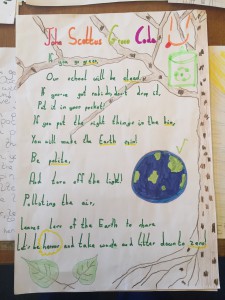 John Scottus Green Code
If you go green
Our school will be clean.
If you've got rubbish don't drop it,
Put it in your pocket.
If you put the right things in the bin,
You will make the Earth grin!
Be polite,
And turn off the light!
Polluting the air,
Leaves less of the Earth to share
Let's be and take waste and litter down to zero